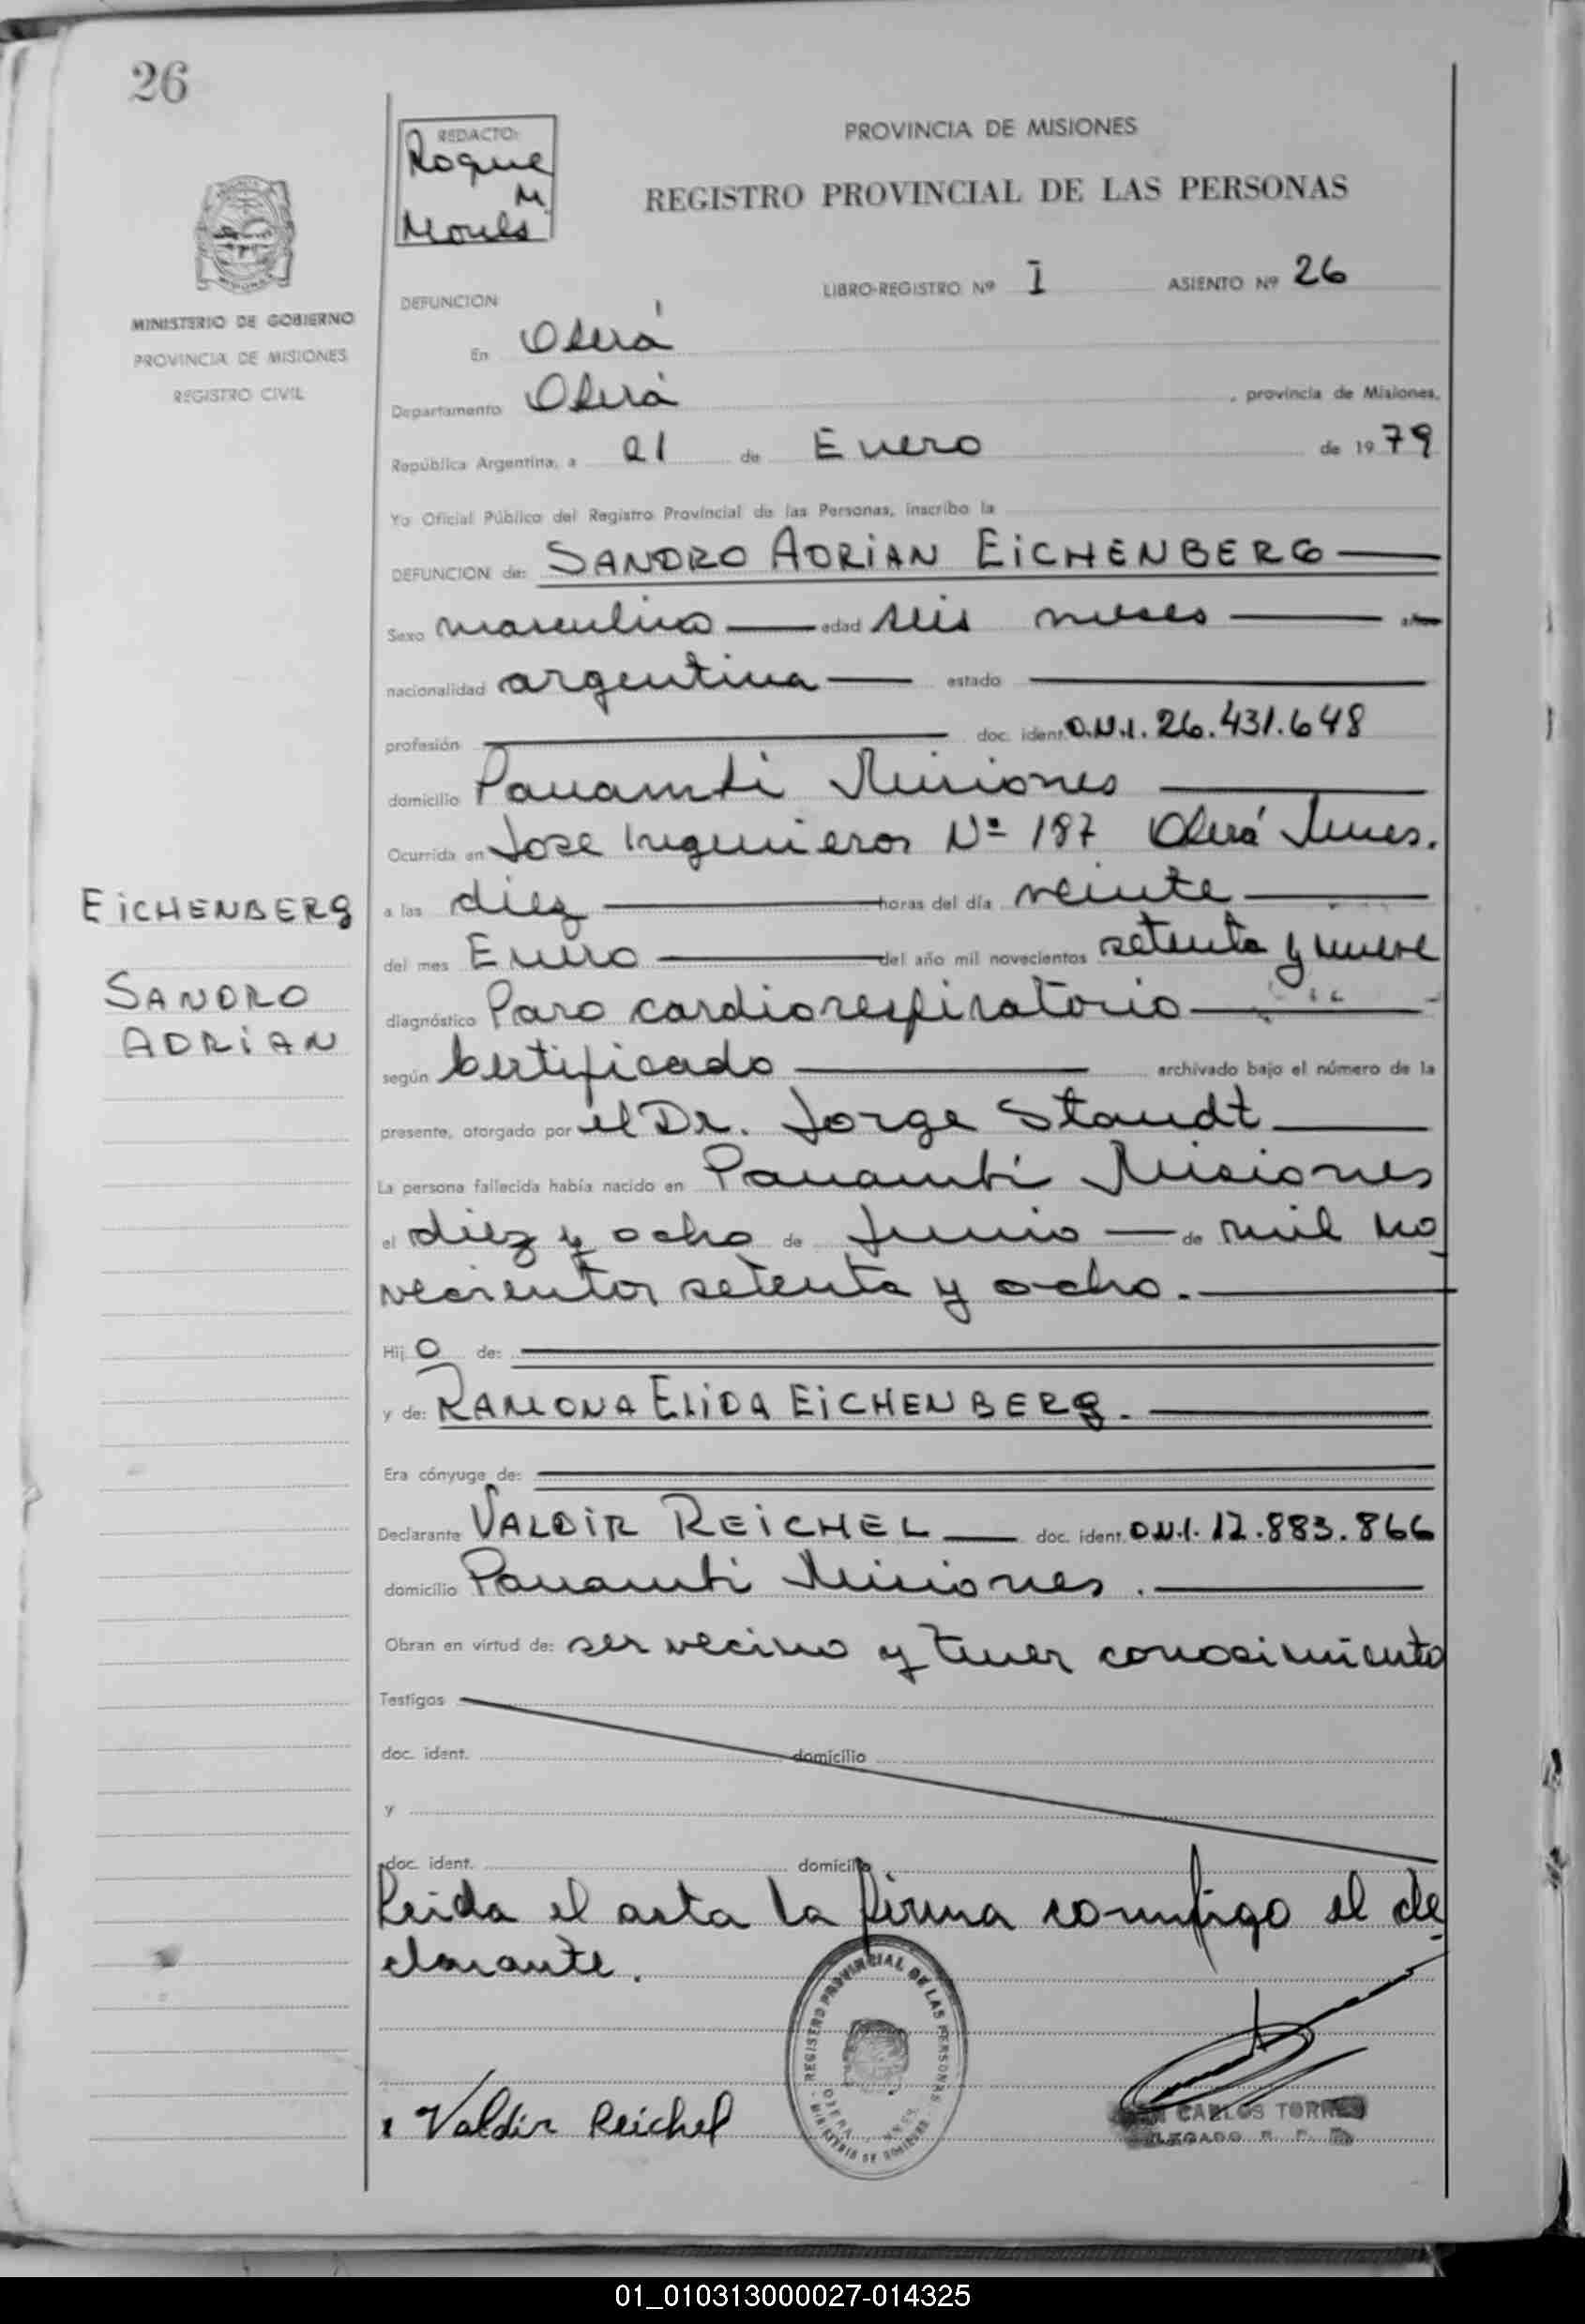 26
REDACTO:
Roque
M
PROVINCIA DE MISIONES
REGISTRO PROVINCIAL DE LAS PERSONAS
MINISTERIO DE GOBIERNO
PROVINCIA DE MISIONES
REGISTRO CIVIL
LIBRO-REGISTRO Nº I ASIENTO Nº 26
DEFUNCION
En Oberá
Departamento Oberá , provincia de Misiones,
República Argentina, a 21 de Enero de 1979
Yo Oficial Público del Registro Provincial de las Personas, inscribo la
DEFUNCION de: SANDRO ADRIAN EICHENBERG
Sexo masculino edad seis meses
nacionalidad argentina estado
profesión doc. ident. D.N.I. 26.431.648
domicilio Panambi Misiones
Ocurrida en Jose Ingenieros Nº 187 Oberá Mnes.
EICHENBERG
SANDRO
ADRIAN
a las diez horas del día veinte
del mes Enero del año mil novecientos setenta y nueve
diagnóstico Paro cardiorespiratorio
según Certificado archivado bajo el número de la
presente, otorgado por el Dr. Jorge Staudt
La persona fallecida había nacido en Panambi Misiones
el diez y ocho de Junio de mil no
vecientos setenta y ocho.
Hij o de:
y de: RAMONA ELIDA EICHENBERG.
Era cónyuge de:
Declarante VALDIR REICHEL doc. ident. D.N.I. 12.883.866
domicilio Panambi Misiones.
Obran en virtud de: ser vecino y tener conocimiento
Testigos
doc. ident. domicilio
y
doc. ident. domicilio
Leida el acta la firma conmigo el de
clarante.
REGISTRO PROVINCIAL DE LAS PERSONAS
MINISTERIO DE GOBIERNO
Valdir Reichel
CARLOS TORRES
01_010313000027-014325